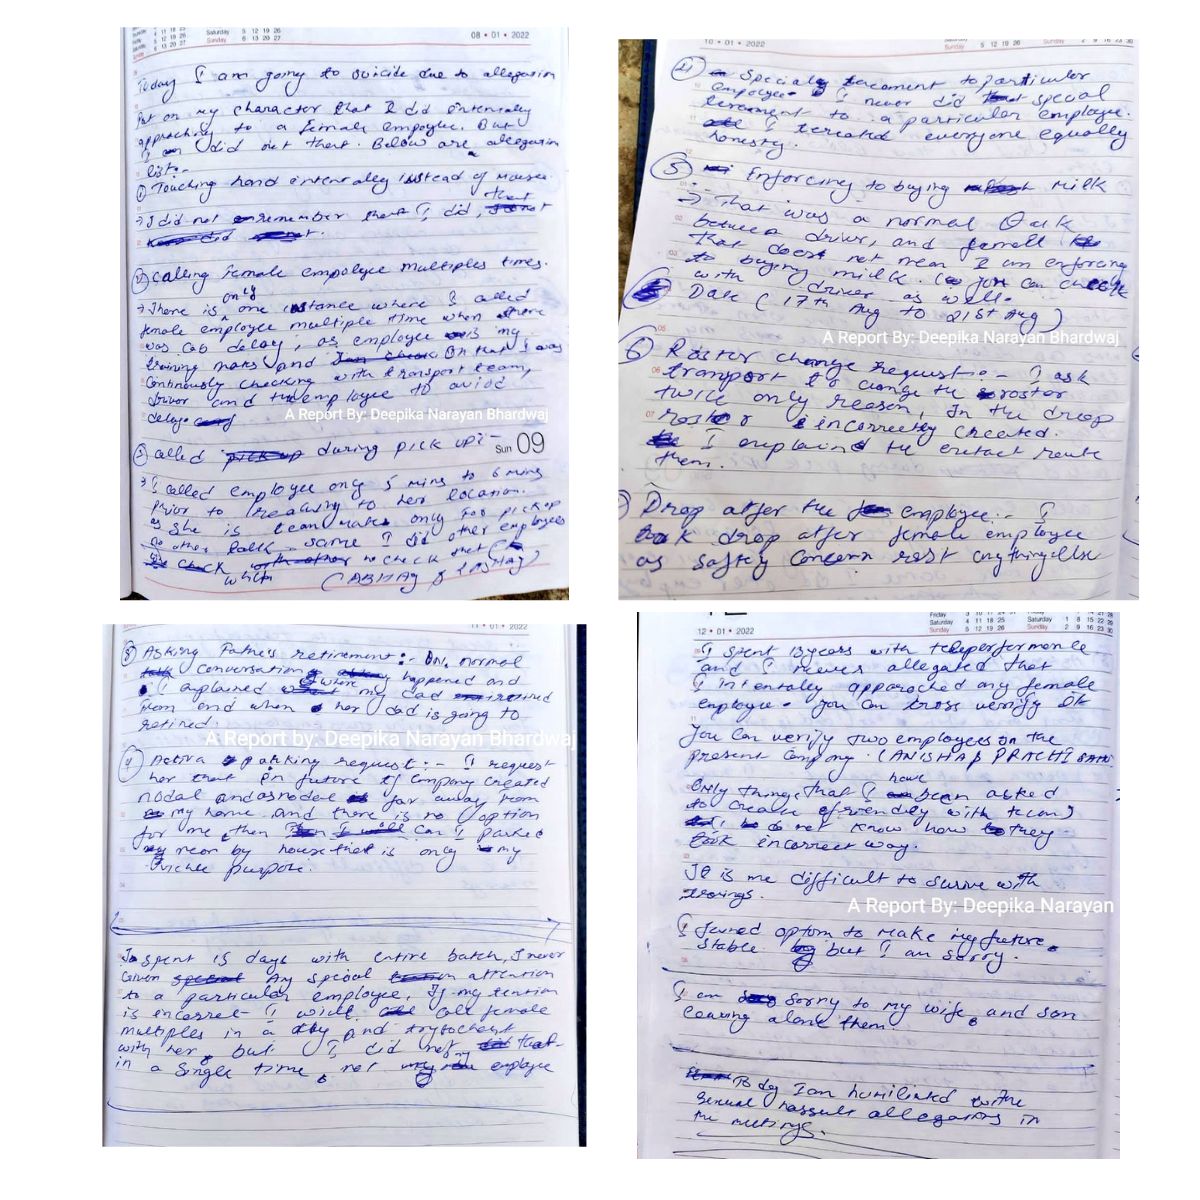 08 • 01 • 2022
Today I am going to suicide due to allegation
Put on my character that I did intensially
approching to a female empoylee. But
I did not that. Below are allegation
list:-
① Touching hand intentally instead of mouse
→ I did not remember that I did,
② Calling female empolyee multiples times.
→ There is only one instance where I called
female employee multiple time when there
was cab delay, as employee is my
training mates and On that I was
Continously checking with transport team,
driver and the employee to avoid
delays
A Report By: Deepika Narayan Bhardwaj
Sun 09
③ called during pick up:-
→ I called employee only 5 mins to 6 mins
prior to reaching to her location.
as she is team mates only for pickup
no other talk. same I did other employees
to check that
(ABHAY & )
10 • 01 • 2022
④ Specialy to particular
employee I never did special
to a particular employee.
I treated everyone equally
honestly.
⑤ Enforcing to buying Milk
→ That was a normal talk
between driver, and female
that doest not mean I am enforcing
to buying milk. you can check
with driver as well.
Date (17th Aug to 21st Aug)
A Report By: Deepika Narayan Bhardwaj
⑥ Roster change request:- I ask
transport to change the roster
twice only reason, In the drop
roster incorrectly created.
I explained the route
them.
Drop after the employee:- I
drop after female employee
as safty concern rest anything else
11 • 01 • 2022
⑧ Asking Father's retirement:- On, normal
conversation happened and
I explained where my dad retired
from and when her dad is going to
retired.
A Report by: Deepika Narayan Bhardwaj
Activa parking request:- I request
her that in future if company created
nodal and far away from
my home and there is no option
for me then can I parked
near by house that is only my
purpose.
I spent 15 days with entire batch, I never
Given Any special attention
to a particular employee, If my tention
is incorret I will call female
multiples in a day and
with her, but I did not that
in a single time, not my employee
12 • 01 • 2022
I spent 13 years with teleperformance
and I never allegated that
I intentally approached any female
employee. you can cross verrify it
You can veriyy two employees on the
present company. (ANISHA & PRACHI
Only things that I have been asked
to create friendly with team)
do not know how they
took incorrect way.
It is me difficult to survive with
things.
A Report By: Deepika Narayan
I joined optom to make my future
stable but I am sorry.
I am sorry to my wife, and son
leaving alone them
Today I am humiliated
sexual allegations in
the meetings.